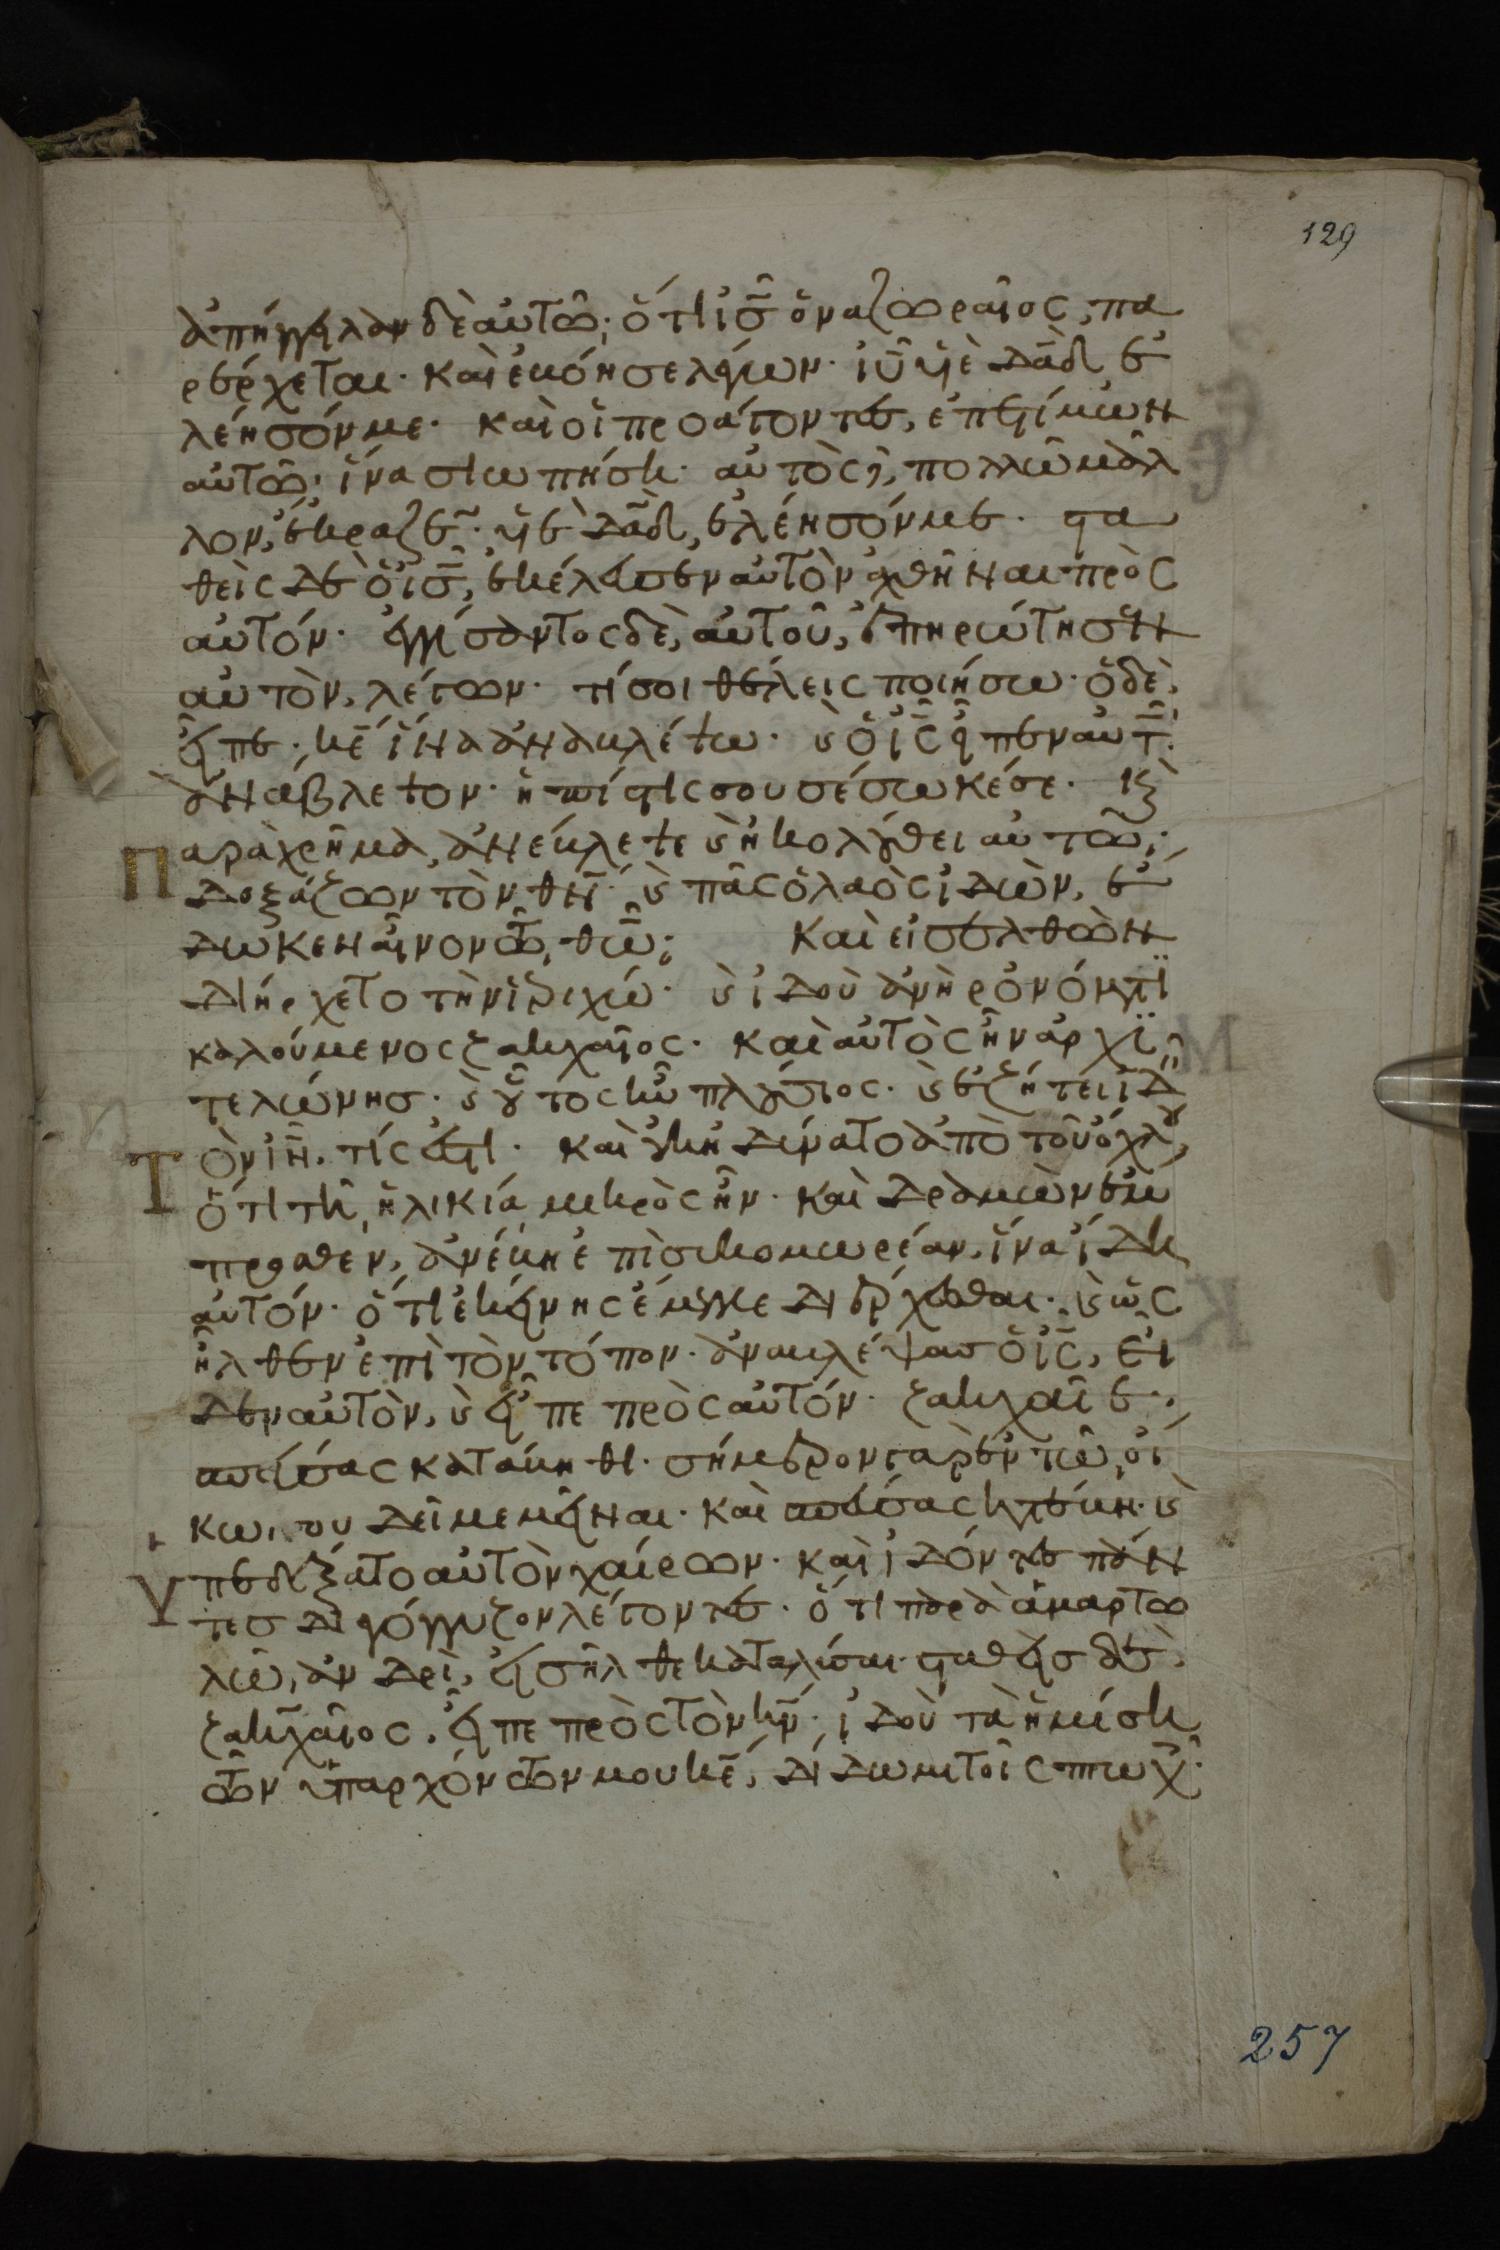 129
ἀπήγγειλαν δὲ αὐτῶ· ὅτι ις̅ ὁ ναζωραῖος, πα
ρέρχεται· καὶ ἐβόησε λέγων· ιυ̅ υἱὲ δα̅δ ἐ
λέησόν με· καὶ οἱ προάγοντες, ἐπετίμων
αὐτῶ· ἵνα σιωπήση· αὐτὸς δὲ, πολλῶ μᾶλ
λον, ἔκραζεν· υἱὲ δα̅δ, ἐλέησόν με· στα
θεὶς δὲ ὁ ις̅, ἐκέλευσεν αὐτὸν ἀχθῆναι πρὸς
αὐτόν· ἐγγίσαντος δὲ, αὐτοῦ, ἐπηρώτησεν
αὐτὸν, λέγων· τί σοι θέλεις ποιήσω· ὁ δὲ,
εἶπε· κε̅ ἵνα ἀναβλέψω· κ ὁ ις̅ εἶπεν αὐτ
ἀνάβλεψον· ἡ πίστις σου σέσωκέ σε· κ
Παραχρῆμα, ἀνέβλεψε κ ἠκολούθει αὐτῶ·
δοξάζων τὸν θν̅· κ πᾶς ὁ λαὸς ἰδὼν, ἔ
δωκεν αἶνον τῶ θω̅· καὶ εἰσελθὼν
διήρχετο τὴν ἰεριχώ· κ ἰδοὺ ἀνὴρ ὀνόματι
καλούμενος ζακχαῖος· καὶ αὐτὸς ἦν ἀρχι
τελώνης· κ οὗτος ἦν πλούσιος· κ ἐζήτει ἰδ
Τὸν ιν̅, τίς ἐστι· καὶ οὐκ ἠδύνατο ἀπὸ τοῦ ὄχλου,
ὅτι τῆ ἡλικία μικρὸς ἦν· καὶ δραμὼν ἔμ
προσθεν, ἀνέβη ἐπὶ συκομωρέαν, ἵνα ἴδη
αὐτόν· ὅτι ἐκείνης ἔμελλε διέρχεσθαι· κ ὡς
ἦλθεν ἐπὶ τὸν τόπον· ἀναβλέψας ὁ ις̅, εἶ
δεν αὐτὸν, κ εἶπε πρὸς αὐτόν· ζακχαῖε·
σπεύσας κατάβηθι· σήμερον γὰρ ἐν τῶ οἴ
κω σου δεῖ με μεῖναι· καὶ σπεύσας κατέβη· κ
Ὑπεδέξατο αὐτὸν χαίρων· καὶ ἰδόντες πάν
τες διεγόγγυζον λέγοντες· ὅτι παρὰ ἁμαρτω
λῶ ἀνδρὶ, εἰσῆλθε καταλύσαι· σταθεὶς δὲ
ζακχαῖος, εἶπε πρὸς τὸν κν̅· ἰδοὺ τὰ ἡμίση
τῶν ὑπαρχόντων μου κε̅, δίδωμι τοῖς πτωχ
257